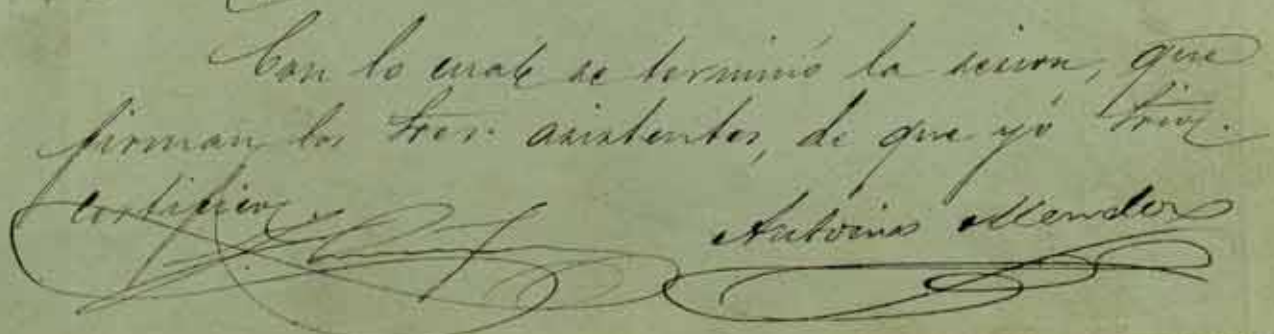 Con lo cual se terminó la sesion, que
firman los Sres. asistentes, de que yó Srio.
certifico.
Antonio Mendez